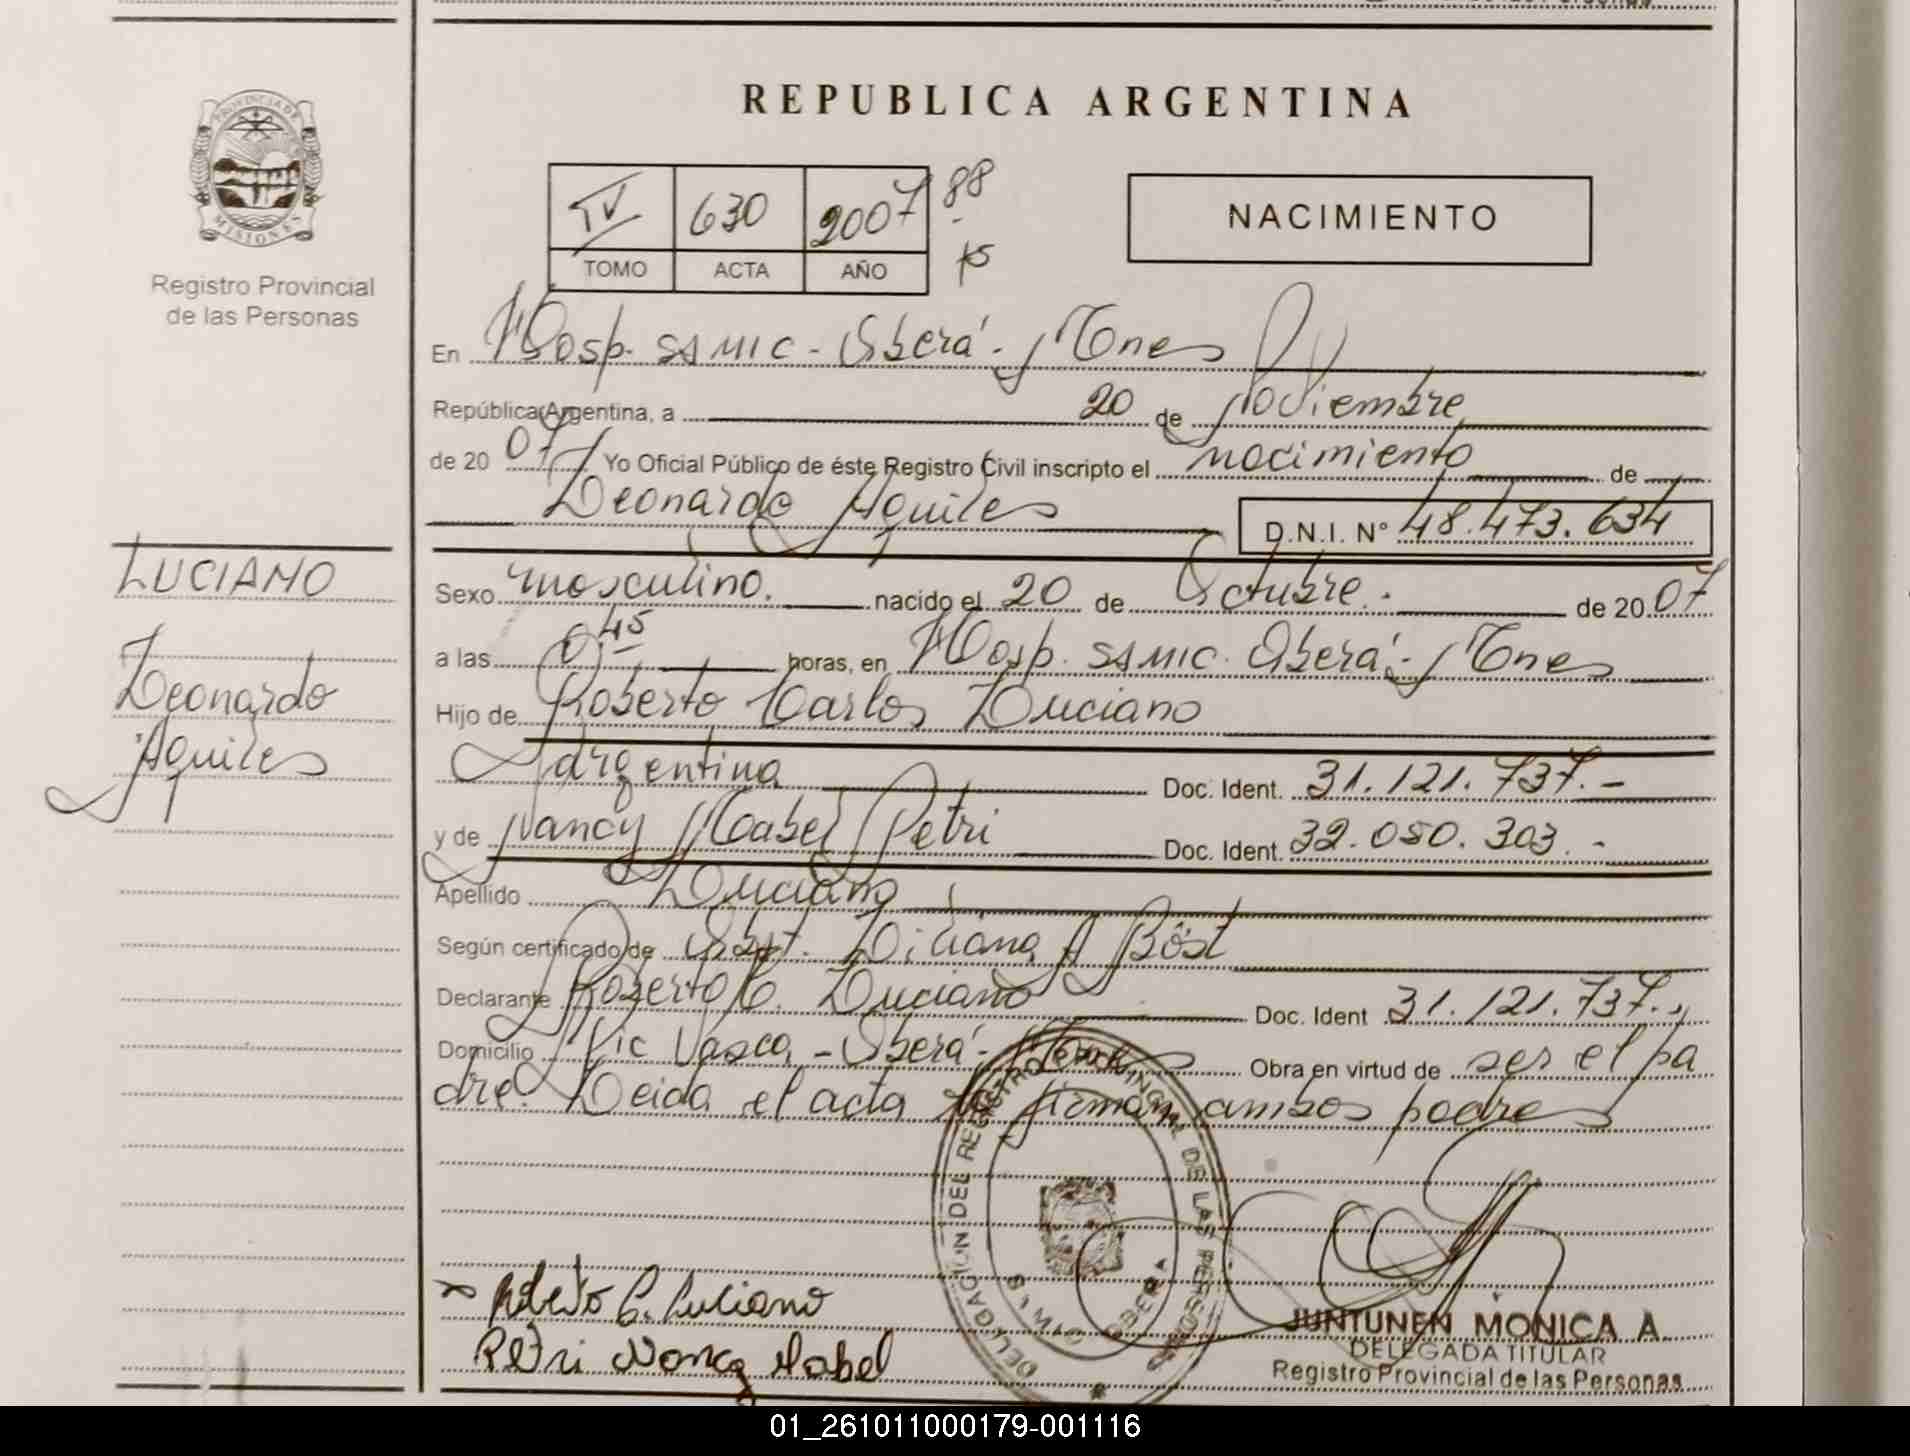 REPUBLICA ARGENTINA
PROVINCIA DE
MISIONES
Registro Provincial
de las Personas
IV 630 2007 88
TOMO ACTA AÑO 15
NACIMIENTO
En Hosp. SAMIC - Oberá - Mnes
República Argentina, a 20 de Noviembre
de 20 07 Yo Oficial Público de éste Registro Civil inscripto el nacimiento de
Leonardo Aquiles D.N.I. Nº 48.473.634
LUCIANO
Leonardo
Aquiles
Sexo masculino. nacido el 20 de Octubre. de 20 07
a las 0,45 horas, en Hosp. SAMIC. Oberá - Mnes
Hijo de Roberto Carlos Luciano
Argentina Doc. Ident. 31.121.737.-
y de Nancy Mabel Petri Doc. Ident. 32.050.303.-
Apellido Luciano
Según certificado de Obst. Liliana A Böst
Declarante Roberto C. Luciano Doc. Ident 31.121.737.,
Domicilio Pic Vasca - Oberá - Mnes Obra en virtud de ser el pa
dre. Leida el acta la firman ambos padres
DELEGACION DEL REGISTRO PROVINCIAL DE LAS PERSONAS
OBERA
Roberto C. Luciano
Petri Nancy Mabel
JUNTUNEN MONICA A.
DELEGADA TITULAR
Registro Provincial de las Personas
01_261011000179-001116